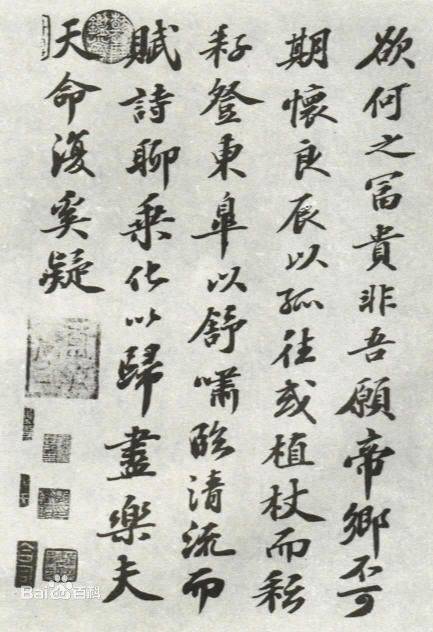 欲何之富貴非吾願帝鄉不可
期懷良辰以孤往或植杖而耘
耔登東皋以舒嘯臨清流而
賦詩聊乘化以歸盡樂夫
天命復奚疑
Bai百科